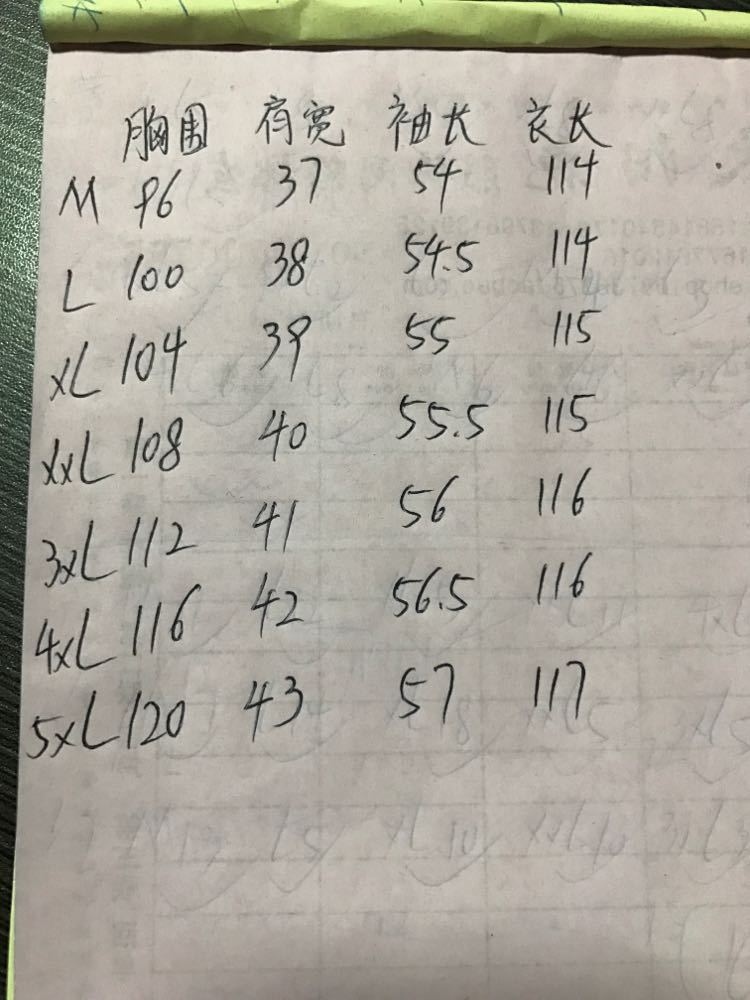 胸围 肩宽 袖长 衣长
M 96 37 54 114
L 100 38 54.5 114
xL 104 39 55 115
xxL 108 40 55.5 115
3xL 112 41 56 116
4xL 116 42 56.5 116
5xL 120 43 57 117